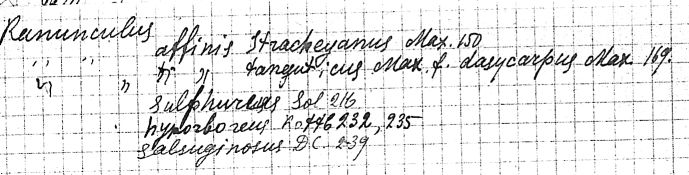 Ranunculus affinis Stracheyanus Max. 150
" " " " " tanguticus Max. f. dasycarpus Max. 169.
sulphureus Sol 216
hyporboreus Rottb 232, 235
salsuginosus DC. 239